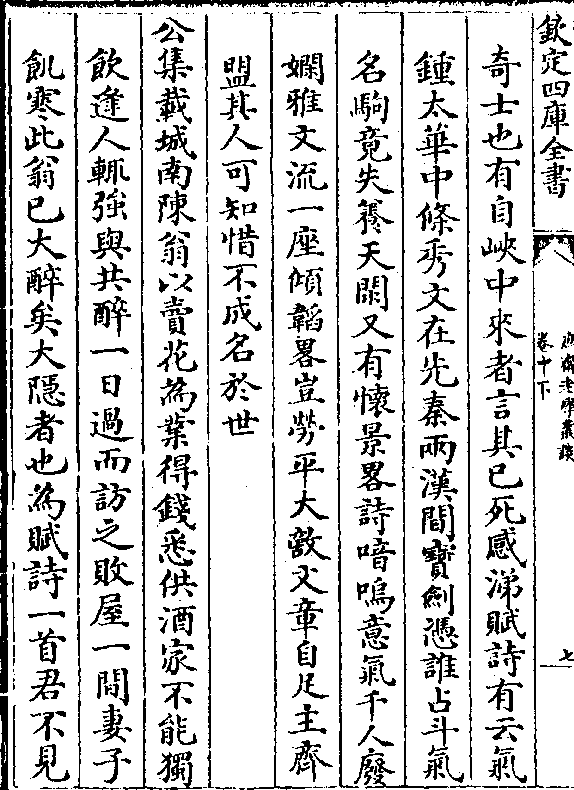 欽定四庫全書
庶齋老學叢談
卷中下
七
奇士也有自峽中來者言其已死感涕賦詩有云氣
鍾太華中條秀文在先秦兩漢間寶劍憑誰占斗氣
名駒竟失養天閑又有懷景畧詩喑嗚意氣千人廢
嫻雅文流一座傾韜畧豈勞平大敵文章自足主齊
盟其人可知惜不成名於世
公集載城南陳翁以賣花為業得錢悉供酒家不能獨
飲逢人輒強與共醉一日過而訪之敗屋一間妻子
飢寒此翁已大醉矣大隱者也為賦詩一首君不見